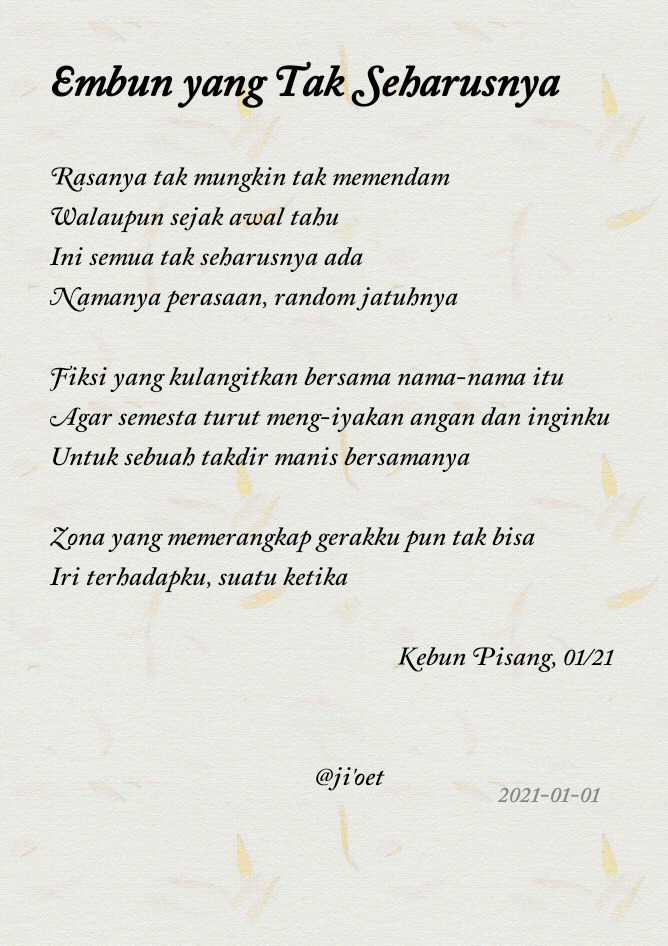 Embun yang Tak Seharusnya
Rasanya tak mungkin tak memendam
Walaupun sejak awal tahu
Ini semua tak seharusnya ada
Namanya perasaan, random jatuhnya
Fiksi yang kulangitkan bersama nama-nama itu
Agar semesta turut meng-iyakan angan dan inginku
Untuk sebuah takdir manis bersamanya
Zona yang memerangkap gerakku pun tak bisa
Iri terhadapku, suatu ketika
Kebun Pisang, 01/21
@ji'oet
2021-01-01